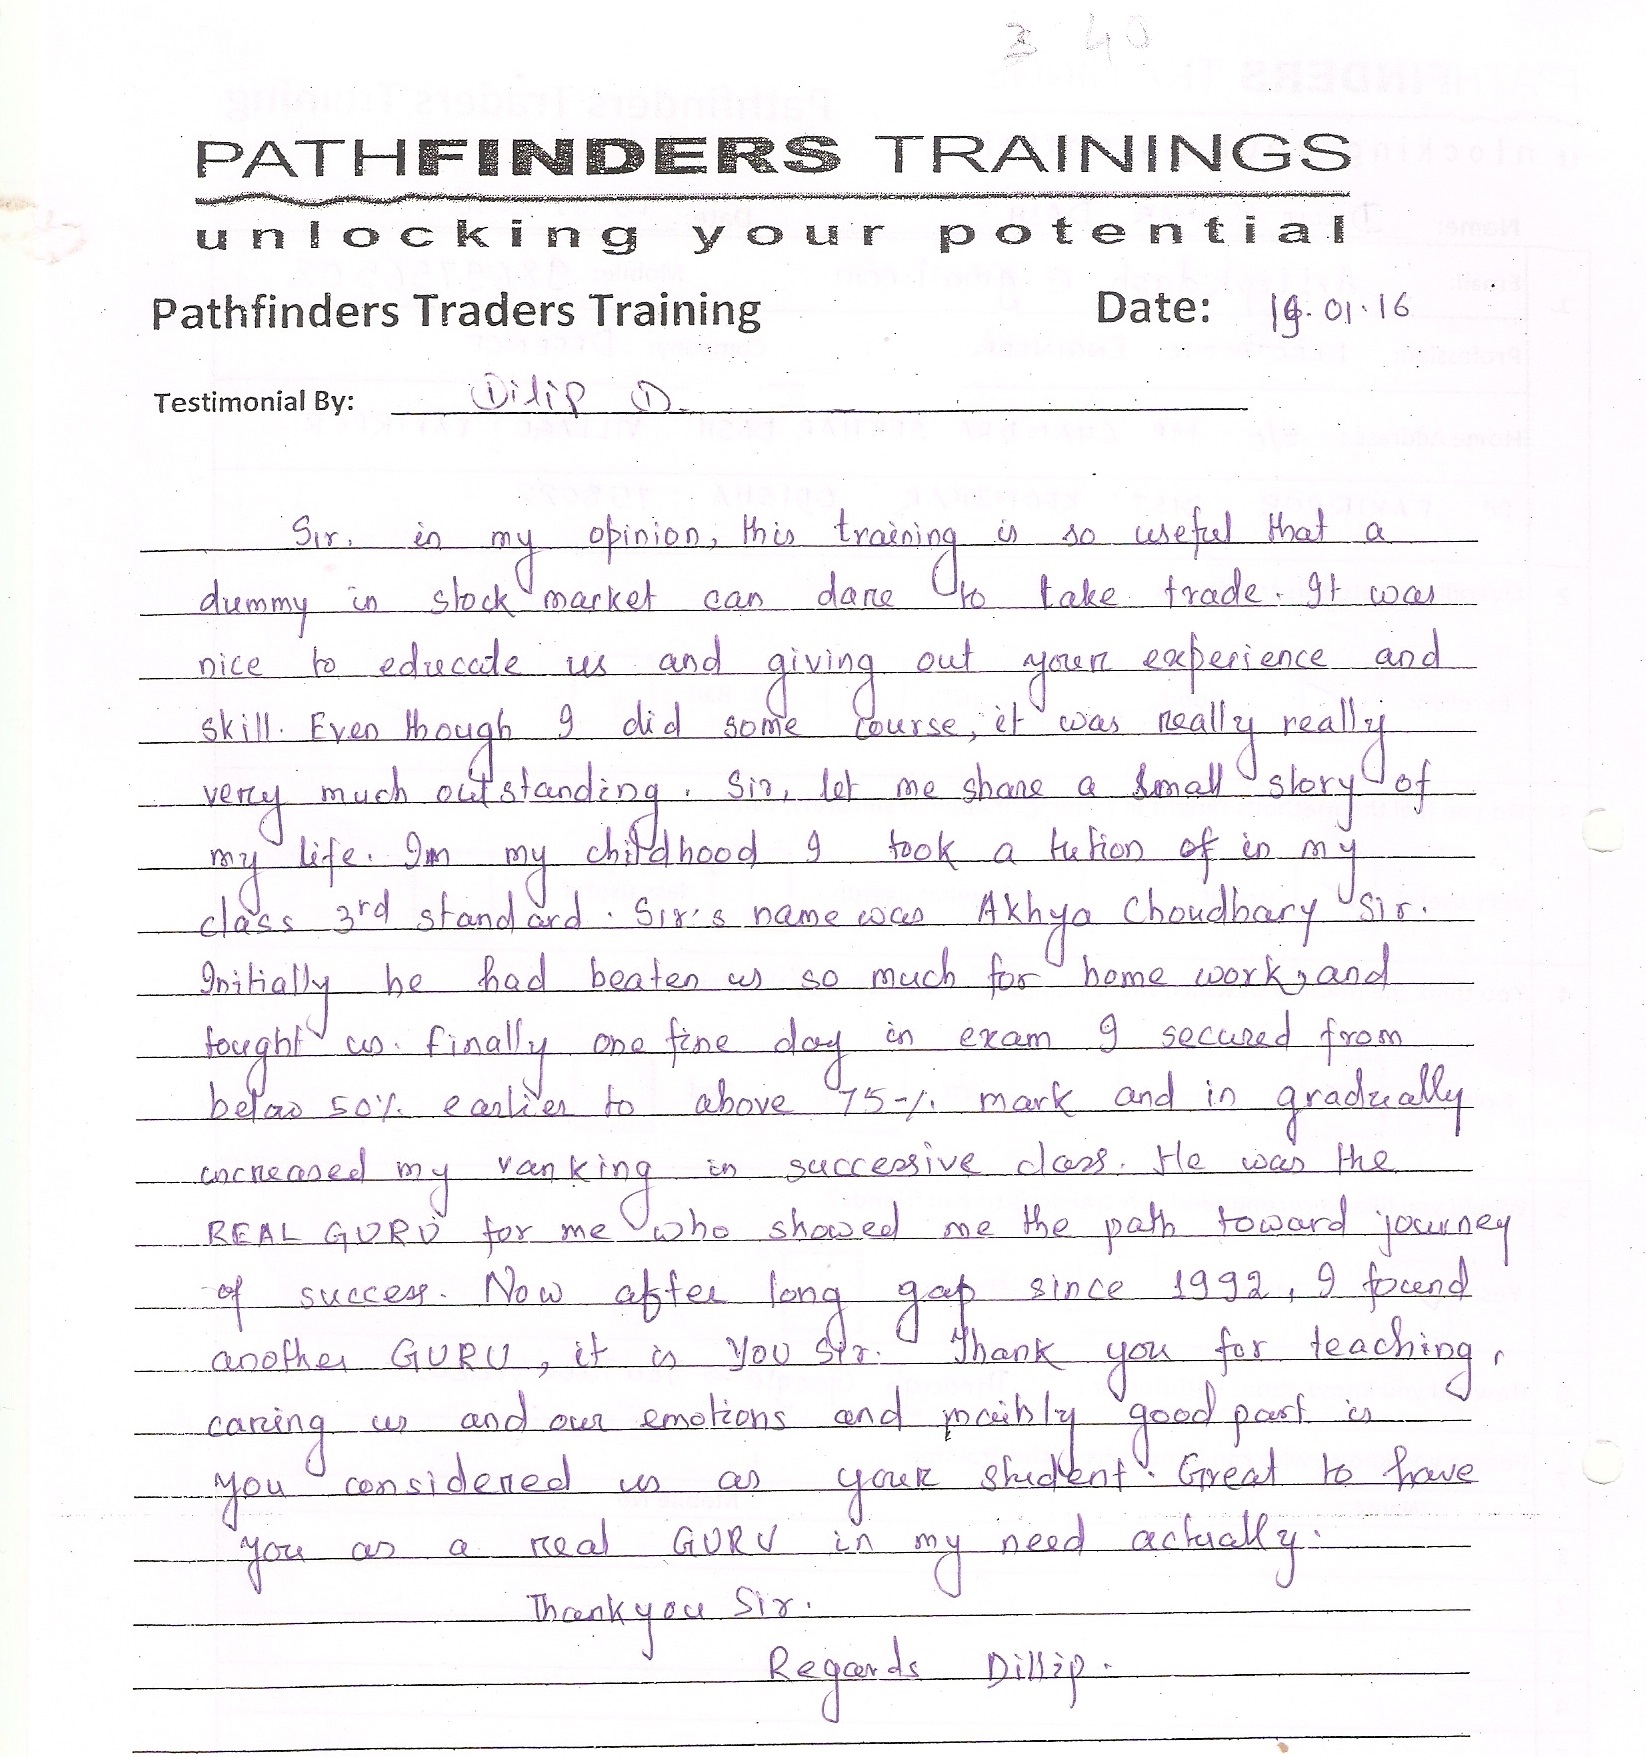 3 40
PATHFINDERS TRAININGS
unlocking your potential
Pathfinders Traders Training Date: 19.01.16
Testimonial By: Dilip D.
Sir. in my opinion, this training is so useful that a
dummy in stock market can dare to take trade. It was
nice to educate us and giving out your experience and
skill. Even though I did some course, it was really really
very much outstanding. Sir, let me share a small story of
my life. In my childhood I took a tution of in my
class 3rd standard. Sir's name was Akhya Choudhary Sir.
Initially he had beaten us so much for home work, and
tought us. Finally one fine day in exam I secured from
below 50% earlier to above 75% mark and in gradually
increased my ranking in successive class. He was the
REAL GURU for me who showed me the path toward journey
of success. Now after long gap since 1992, I found
another GURU, it is YOU Sir. Thank you for teaching,
caring us and our emotions and mainly good part is
you considered us as your student. Great to have
you as a real GURU in my need actually.
Thankyou Sir.
Regards Dillip.